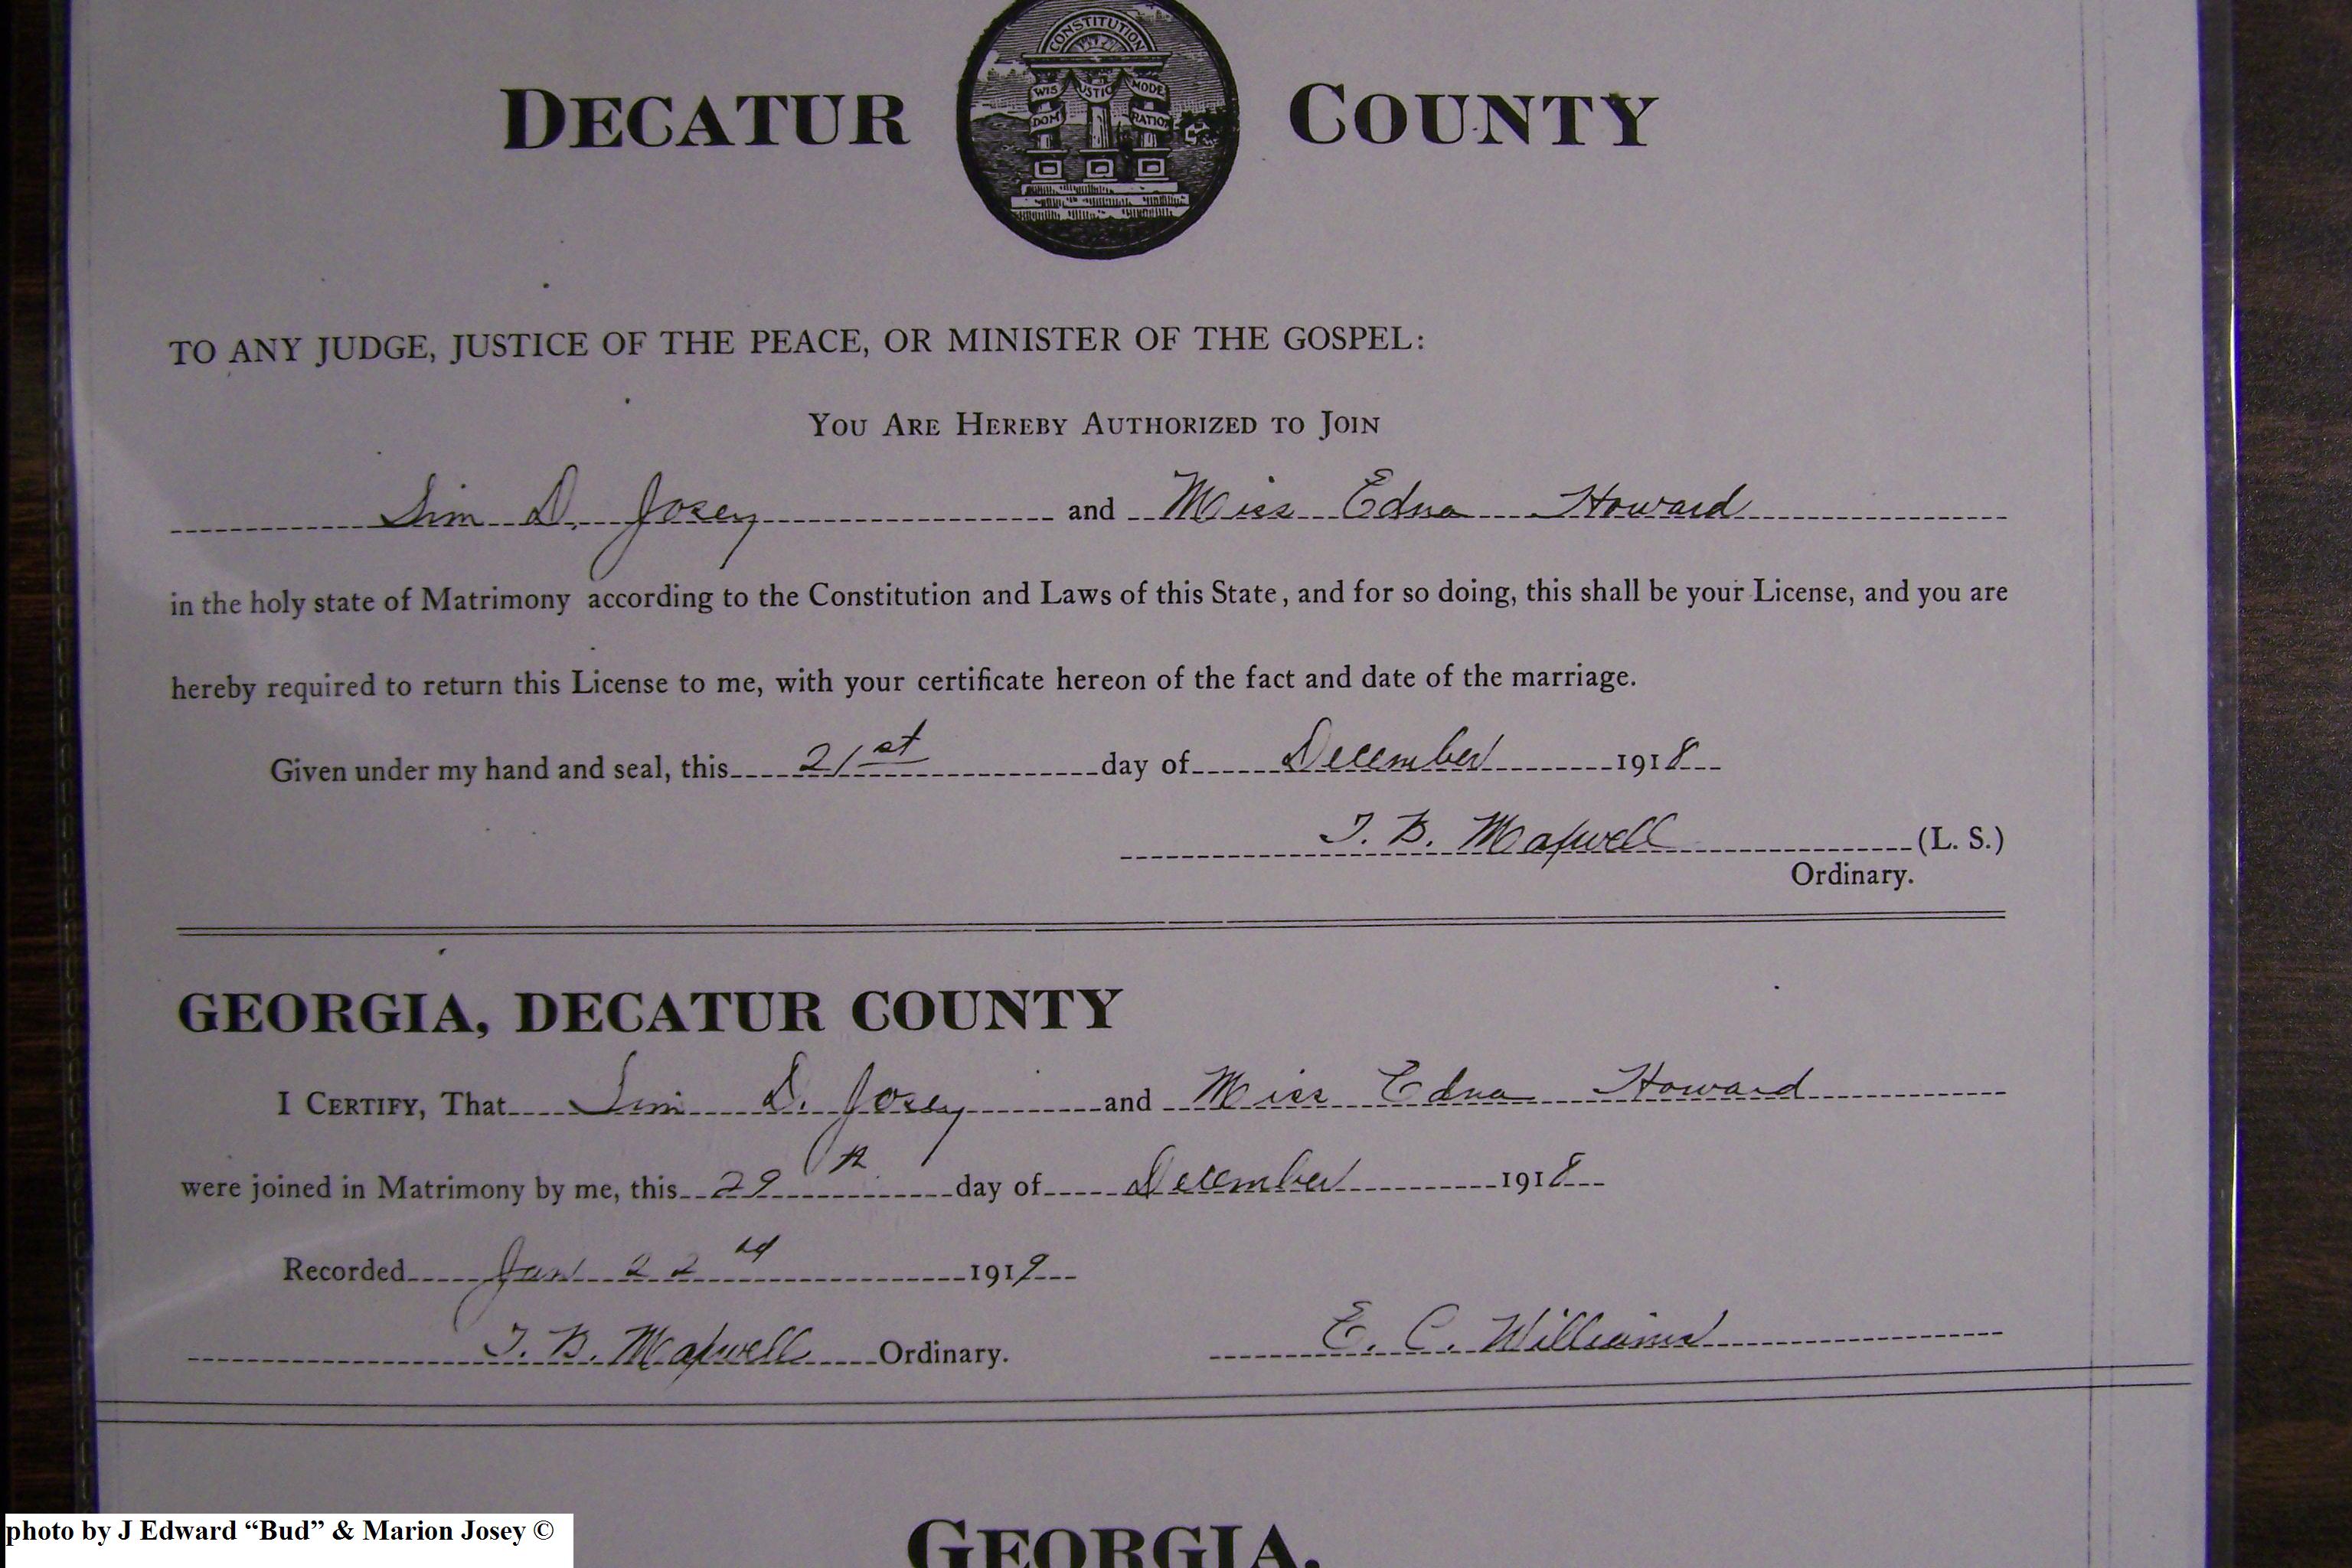 CONSTITUTION
DECATUR COUNTY
WIS JUSTICE MODE
DOM RATION
TO ANY JUDGE, JUSTICE OF THE PEACE, OR MINISTER OF THE GOSPEL:
YOU ARE HEREBY AUTHORIZED TO JOIN
Sim D. Josey and Miss Edna Howard
in the holy state of Matrimony according to the Constitution and Laws of this State, and for so doing, this shall be your License, and you are
hereby required to return this License to me, with your certificate hereon of the fact and date of the marriage.
Given under my hand and seal, this 21st day of December 1918
T. B. Maxwell (L. S.)
Ordinary.
GEORGIA, DECATUR COUNTY
I CERTIFY, That Sim D. Josey and Miss Edna Howard
were joined in Matrimony by me, this 29th day of December 1918
Recorded Jan 22nd 1919
T. B. Maxwell Ordinary. E. C. Williams
GEORGIA,
photo by J Edward “Bud” & Marion Josey ©